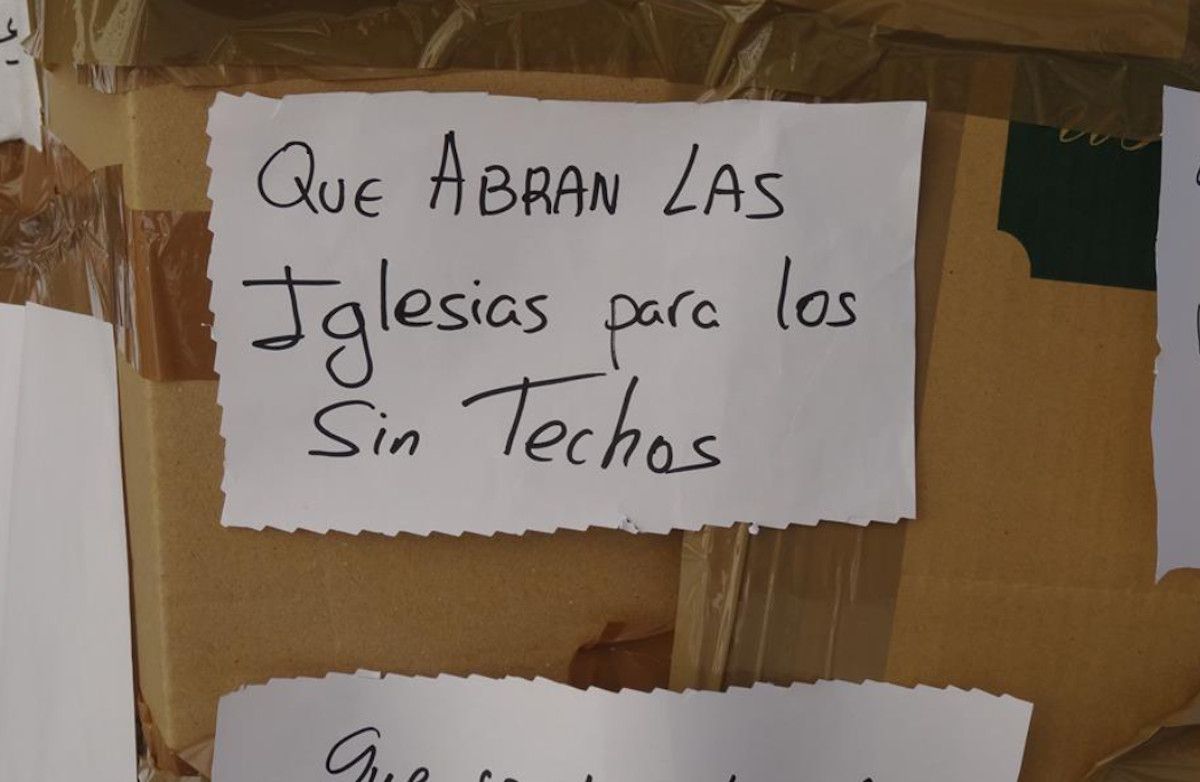 QUE ABRAN LAS
Iglesias para los
Sin Techos
Que